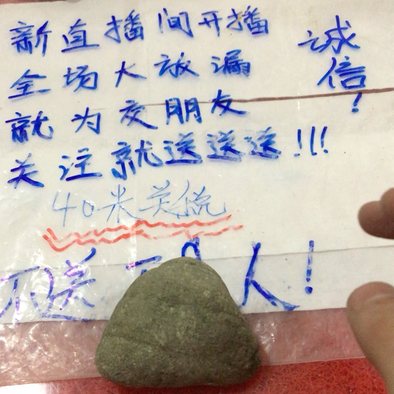 新直播间开播
全场大放漏
就为交朋友
关注就送送送!!!
诚信!
40米关
不送 人!